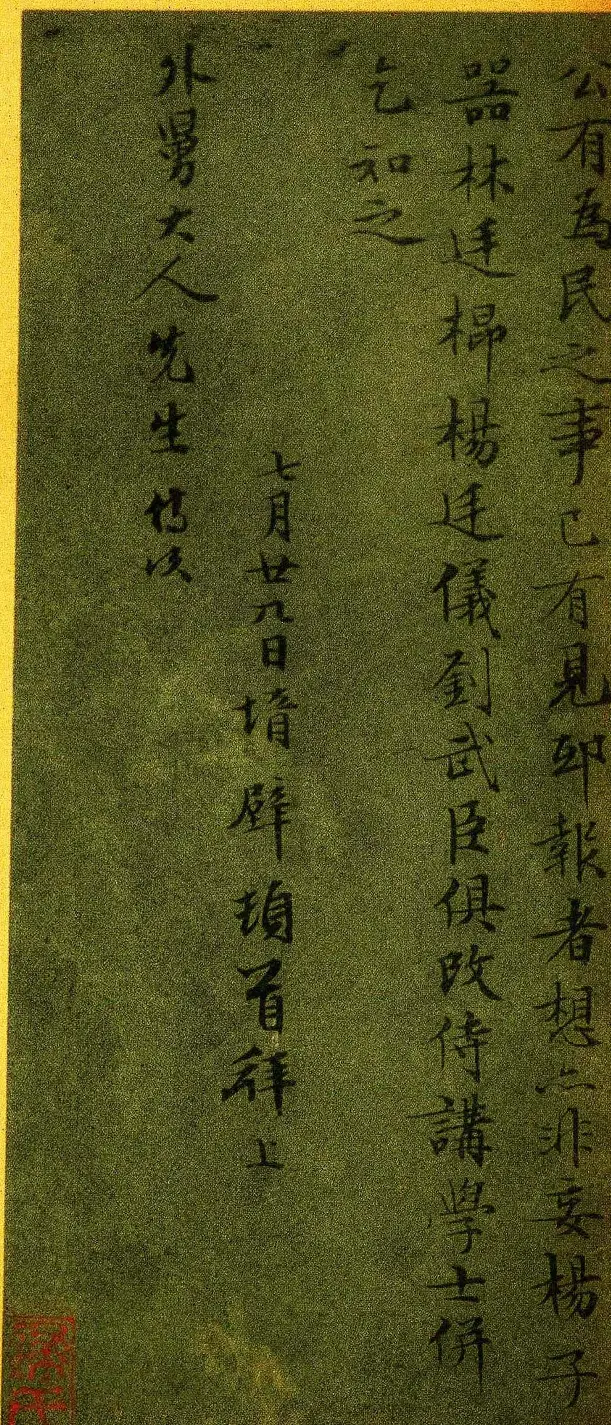 公有為民之事已有見邸報者想亦非妄楊子
器林廷㭿楊廷儀劉武臣俱改侍講學士併
乞知之
七月廿九日壻璧頓首拜上
外舅大人先生侍次